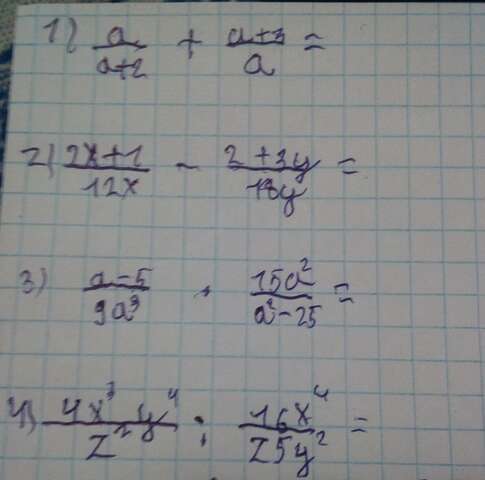 1) a/(a+2) + (a+3)/a =
2) (2x+1)/12x - (2+3y)/18y =
3) (a-5)/9a³ · 15a²/(a²-25) =
4) 4x³y⁴/z² : 16x⁴/z5y² =